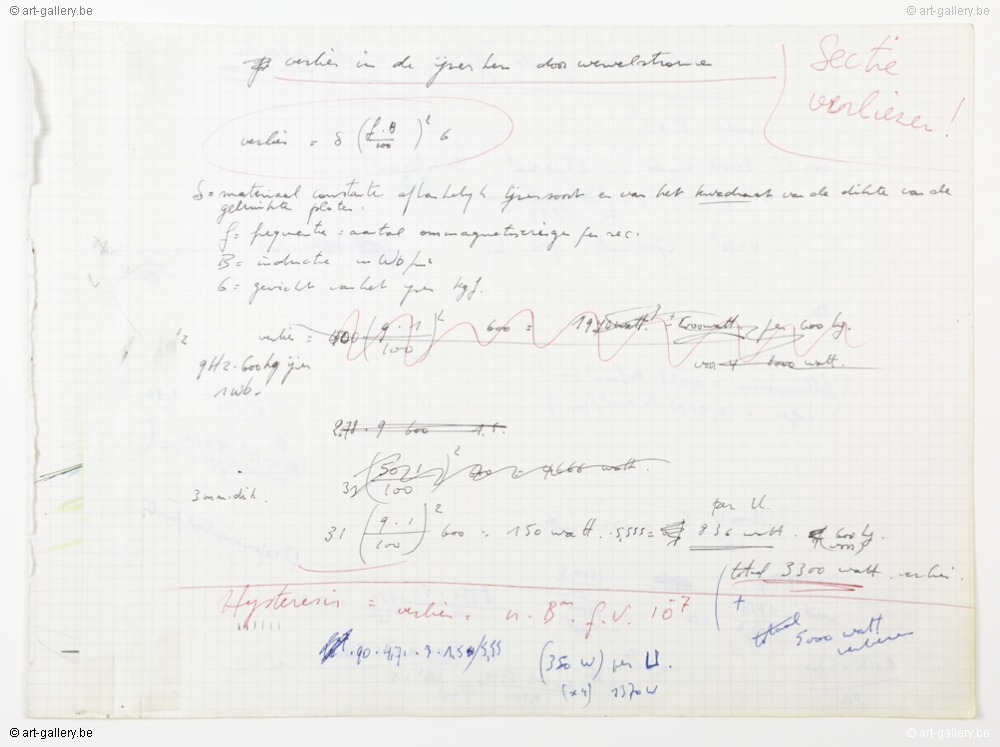 © art-gallery.be
© art-gallery.be
verlies in de ijzerkern door wervelstromen
Sectie
verliezen!
verlies = δ (f·B/100)² G
δ = materiaal constante afhankelijk ijzersoort en van het kwadraat van de dikte van de
gebruikte platen.
f = frequentie = aantal ommagnetiseringen per sec.
B = inductie in Wb/m²
G = gewicht van het ijzer kgf.
verlies = 400 (9·1/100)² 600 = watt per 600 kg.
9Hz·600kg ijzer
1Wb.
voor 4 watt.
2,78 · 9 600 1,5.
31 (50·1/100)² = watt.
3mm dik.
per U.
31 (9·1/100)² 600 = 150 watt · 5,555 = 836 watt. 600 kg.
totaal 3300 watt verlies.
Hysteresis = verlies = n·Bᵐ·f·V·10⁻⁷
+
totaal 5000 watt
verliezen
·90·4,7·9·1,50/5,55
(350 W) per U.
(x4) 1370 W
© art-gallery.be
© art-gallery.be